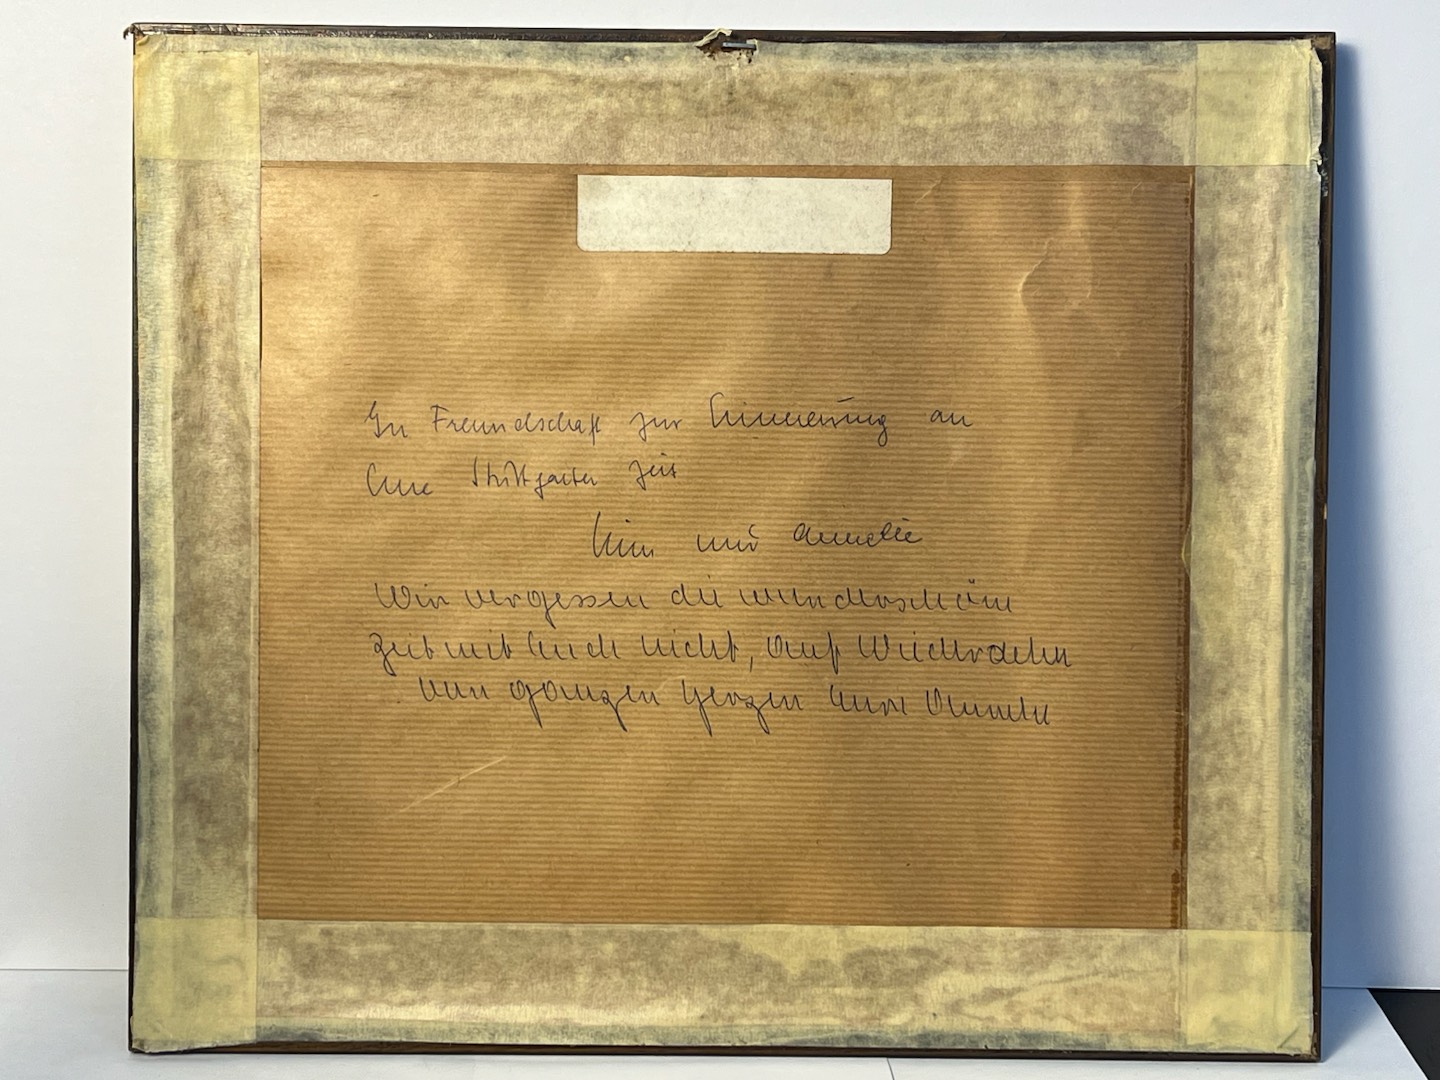 In Freundschaft zur Erinnerung an
Eure Stuttgarter Zeit
und Annelie
Wir vergessen die wunderschöne
Zeit mit Euch nicht, Auf Wiedersehn
von ganzen Herzen Eure Annelie